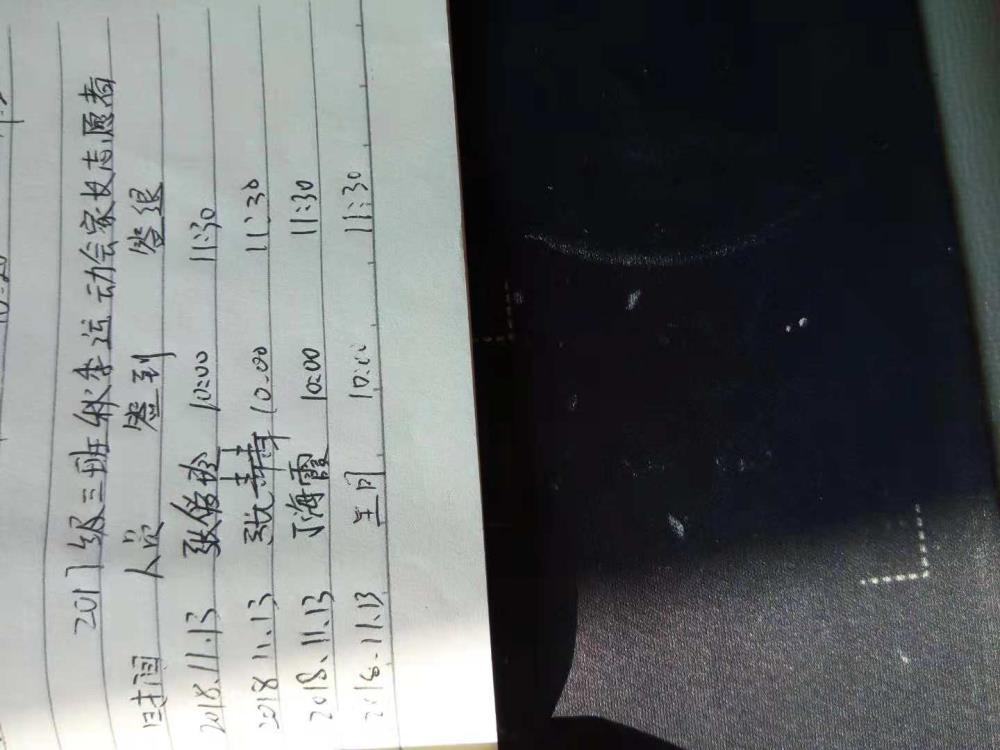 2017级三班秋季运动会家校志愿者
时间 人员 签到 签退
2018.11.13 张俊玲 10:00 11:30
2018.11.13 张 10.00 11:30
2018.11.13 丁海霞 10:00 11:30
2018.11.13 10:00 11:30